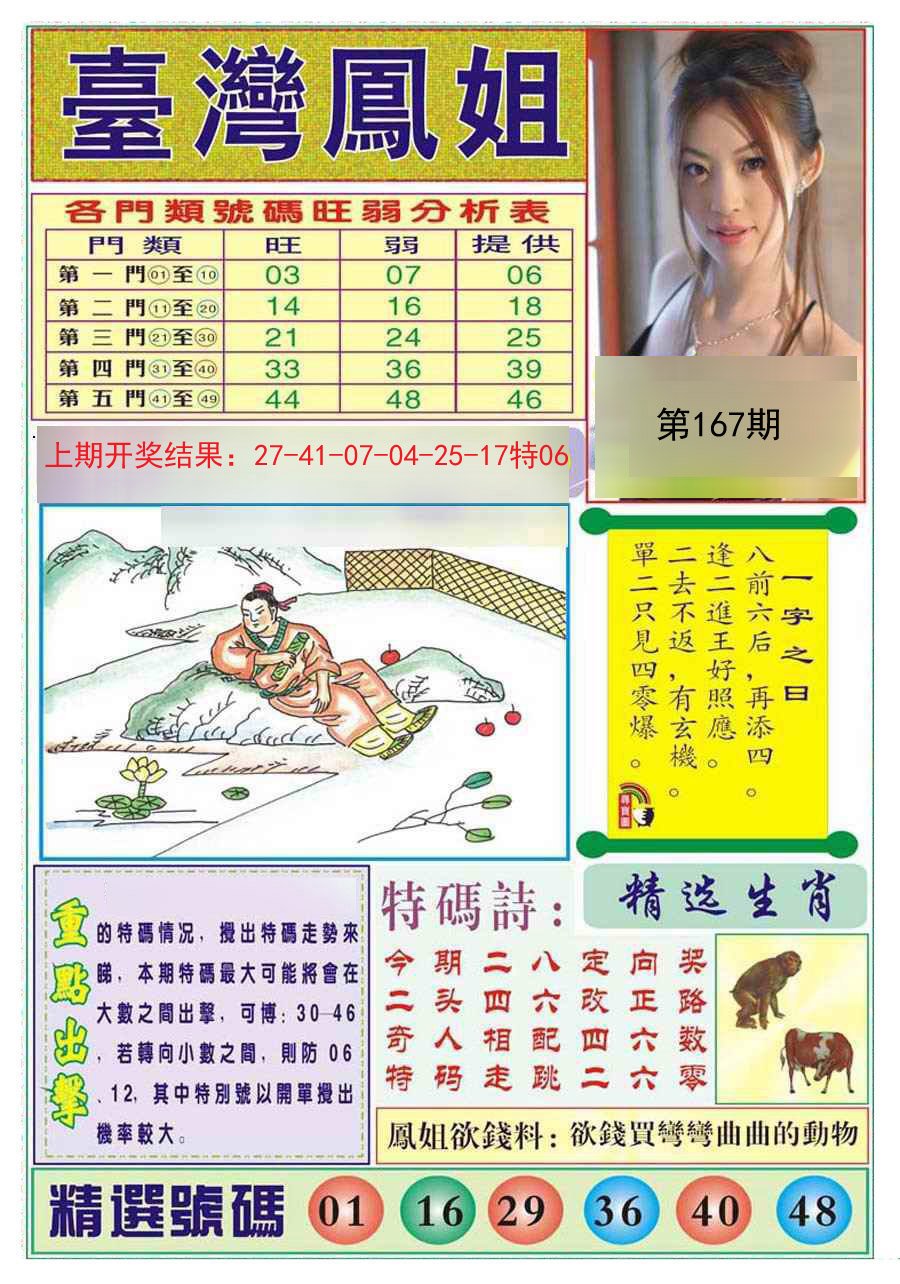 臺灣鳳姐
各門類號碼旺弱分析表
門類 旺 弱 提供
第一門01至10 03 07 06
第二門11至20 14 16 18
第三門21至30 21 24 25
第四門31至40 33 36 39
第五門41至49 44 48 46
第167期
上期开奖结果：27-41-07-04-25-17特06
一字之曰
八前六后，再添四。
逢二進王好照應。
二去不返，有玄機。
單二只見四零爆。
尋寶圖
重點出擊
的特碼情况，攪出特碼走勢來
睇，本期特碼最大可能將會在
大數之間出擊，可博：30—46
，若轉向小數之間，則防 06
、12，其中特別號以開單攪出
機率較大。
特碼詩：
今期二八定向奖
二头四六改正路
奇人相配四六数
特码走跳二六零
精选生肖
鳳姐欲錢料：欲錢買彎彎曲曲的動物
精選號碼 01 16 29 36 40 48